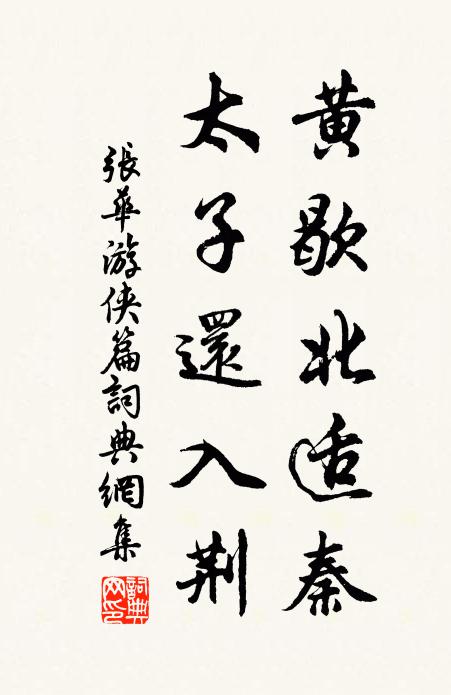 黄歇北适秦
太子還入荆
張華游侠篇詞典網集
詞典网印